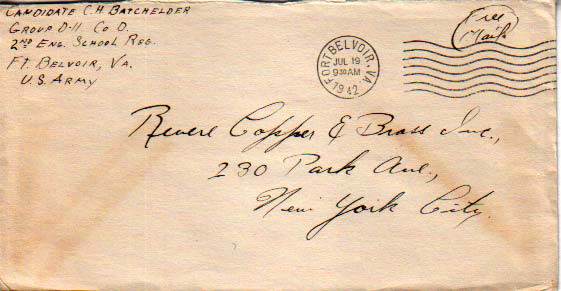 CANDIDATE C.H. BATCHELDER
GROUP D-11 CO D.
2ND ENG. SCHOOL REG.
FT. BELVOIR, VA.
U.S. ARMY
FORT BELVOIR, VA
JUL 19
9 30 AM
1942
Free
Mail
Revere Copper & Brass Inc.,
230 Park Ave.,
New York City.